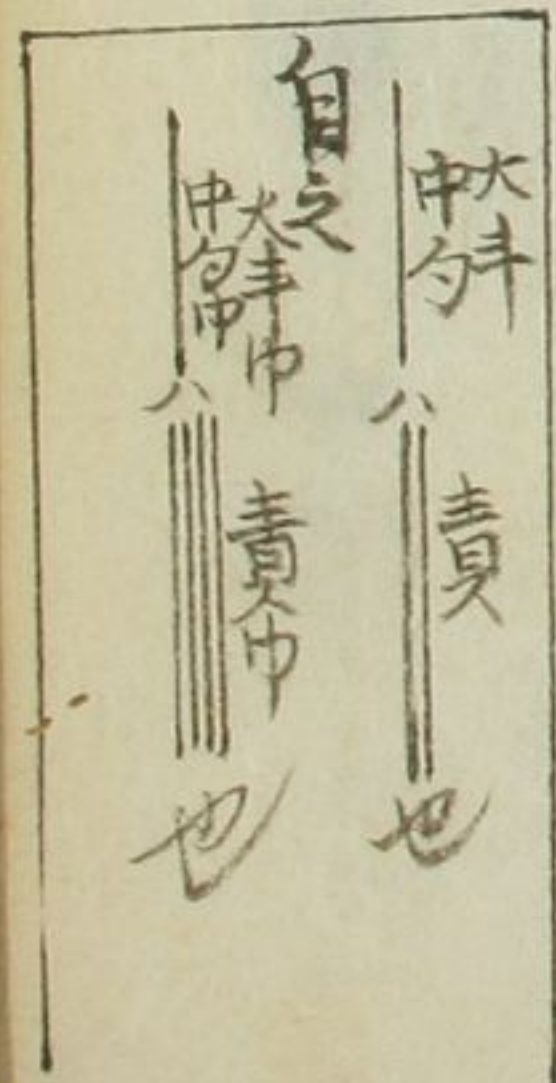 大斗
中勺
八
責
也
自之
大斗巾
中勺巾
八
責巾
也